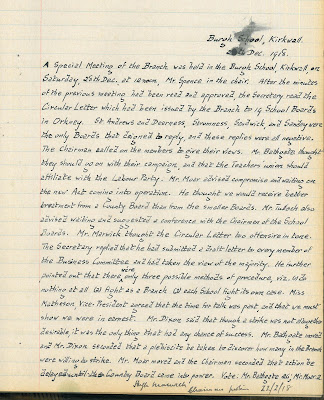 Burgh School, Kirkwall.
Dec. 1918.
A Special Meeting of the Branch was held in the Burgh School, Kirkwall, on
Saturday, 28th Dec. at 12 noon, Mr. Spence in the chair. After the minutes
of the previous meeting had been read and approved, the Secretary read the
Circular Letter which had been issued by the Branch to 19 School Boards
in Orkney. St Andrews and Deerness, Stromness, Sandwick, and Sanday were
the only Boards that deigned to reply, and these replies were all negative.
The Chairman called on the members to give their views. Mr. Bathgate thought
they should go on with their campaign, and that the Teachers' Union should
affiliate with the Labour Party. Mr. Muar advised compromise and waiting on
the new Act coming into operation. He thought we would receive better
treatment from a County Board than from the smaller Boards. Mr. Tulloch also
advised waiting and suggested a conference with the Chairman of the School
Boards. Mr. Marwick thought the Circular Letter too offensive in tone.
The Secretary replied that he had submitted a draft letter to every member of
the Business Committee and had taken the view of the majority. He further
pointed out that there were only three possible methods of procedure, viz. (1) do
nothing at all (2) fight as a Branch (3) each School fight its own case. Miss
Matheson, Vice-President agreed that the time for talk was past and that we must
show we were in earnest. Mr. Dixon said that though a strike was not
desirable, it was the only thing that had any chance of success. Mr. Bathgate moved
and Mr. Dixon seconded that a plebiscite be taken to discover how many in the Branch
were willing to strike. Mr. Muar moved and the Chairman seconded that action be
delayed until the County Board came into power. Vote: Mr. Bathgate 26; Mr. Muar 2.
Hugh Marwick
Chairman
22/2/18